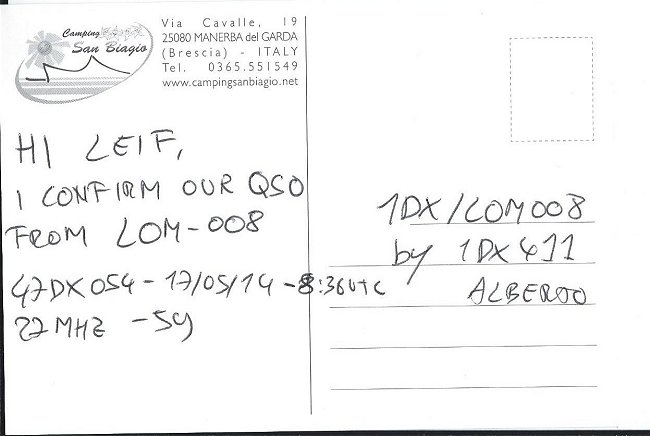 Camping
San Biagio
Via Cavalle, 19
25080 MANERBA del GARDA
(Brescia) - ITALY
Tel. 0365.551549
www.campingsanbiagio.net
HI LEIF,
I CONFIRM OUR QSO
FROM LOM-008
47DX054 - 17/05/14 - 8:36 UTC
27 MHZ - 59
1DX/LOM008
by 1DX411
ALBERTO